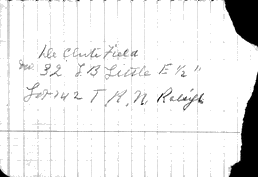 De Clute Field
No 32 J B Little E ½ "
Lot 242 T K N Raleigh